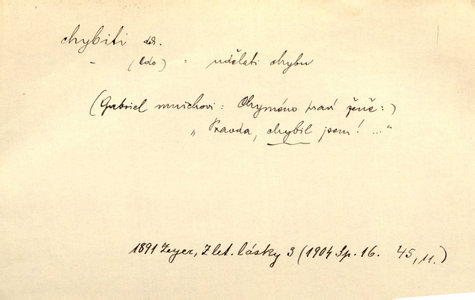 chybiti dk.
– (kdo) = udělati chybu
(Gabriel mnichovi: Ohyměno praví ženě:)
„Pravda, chybil jsem! ..."
1891 Zeyer, Z let. lásky 3 (1904 Sp. 16. 45, 11.)